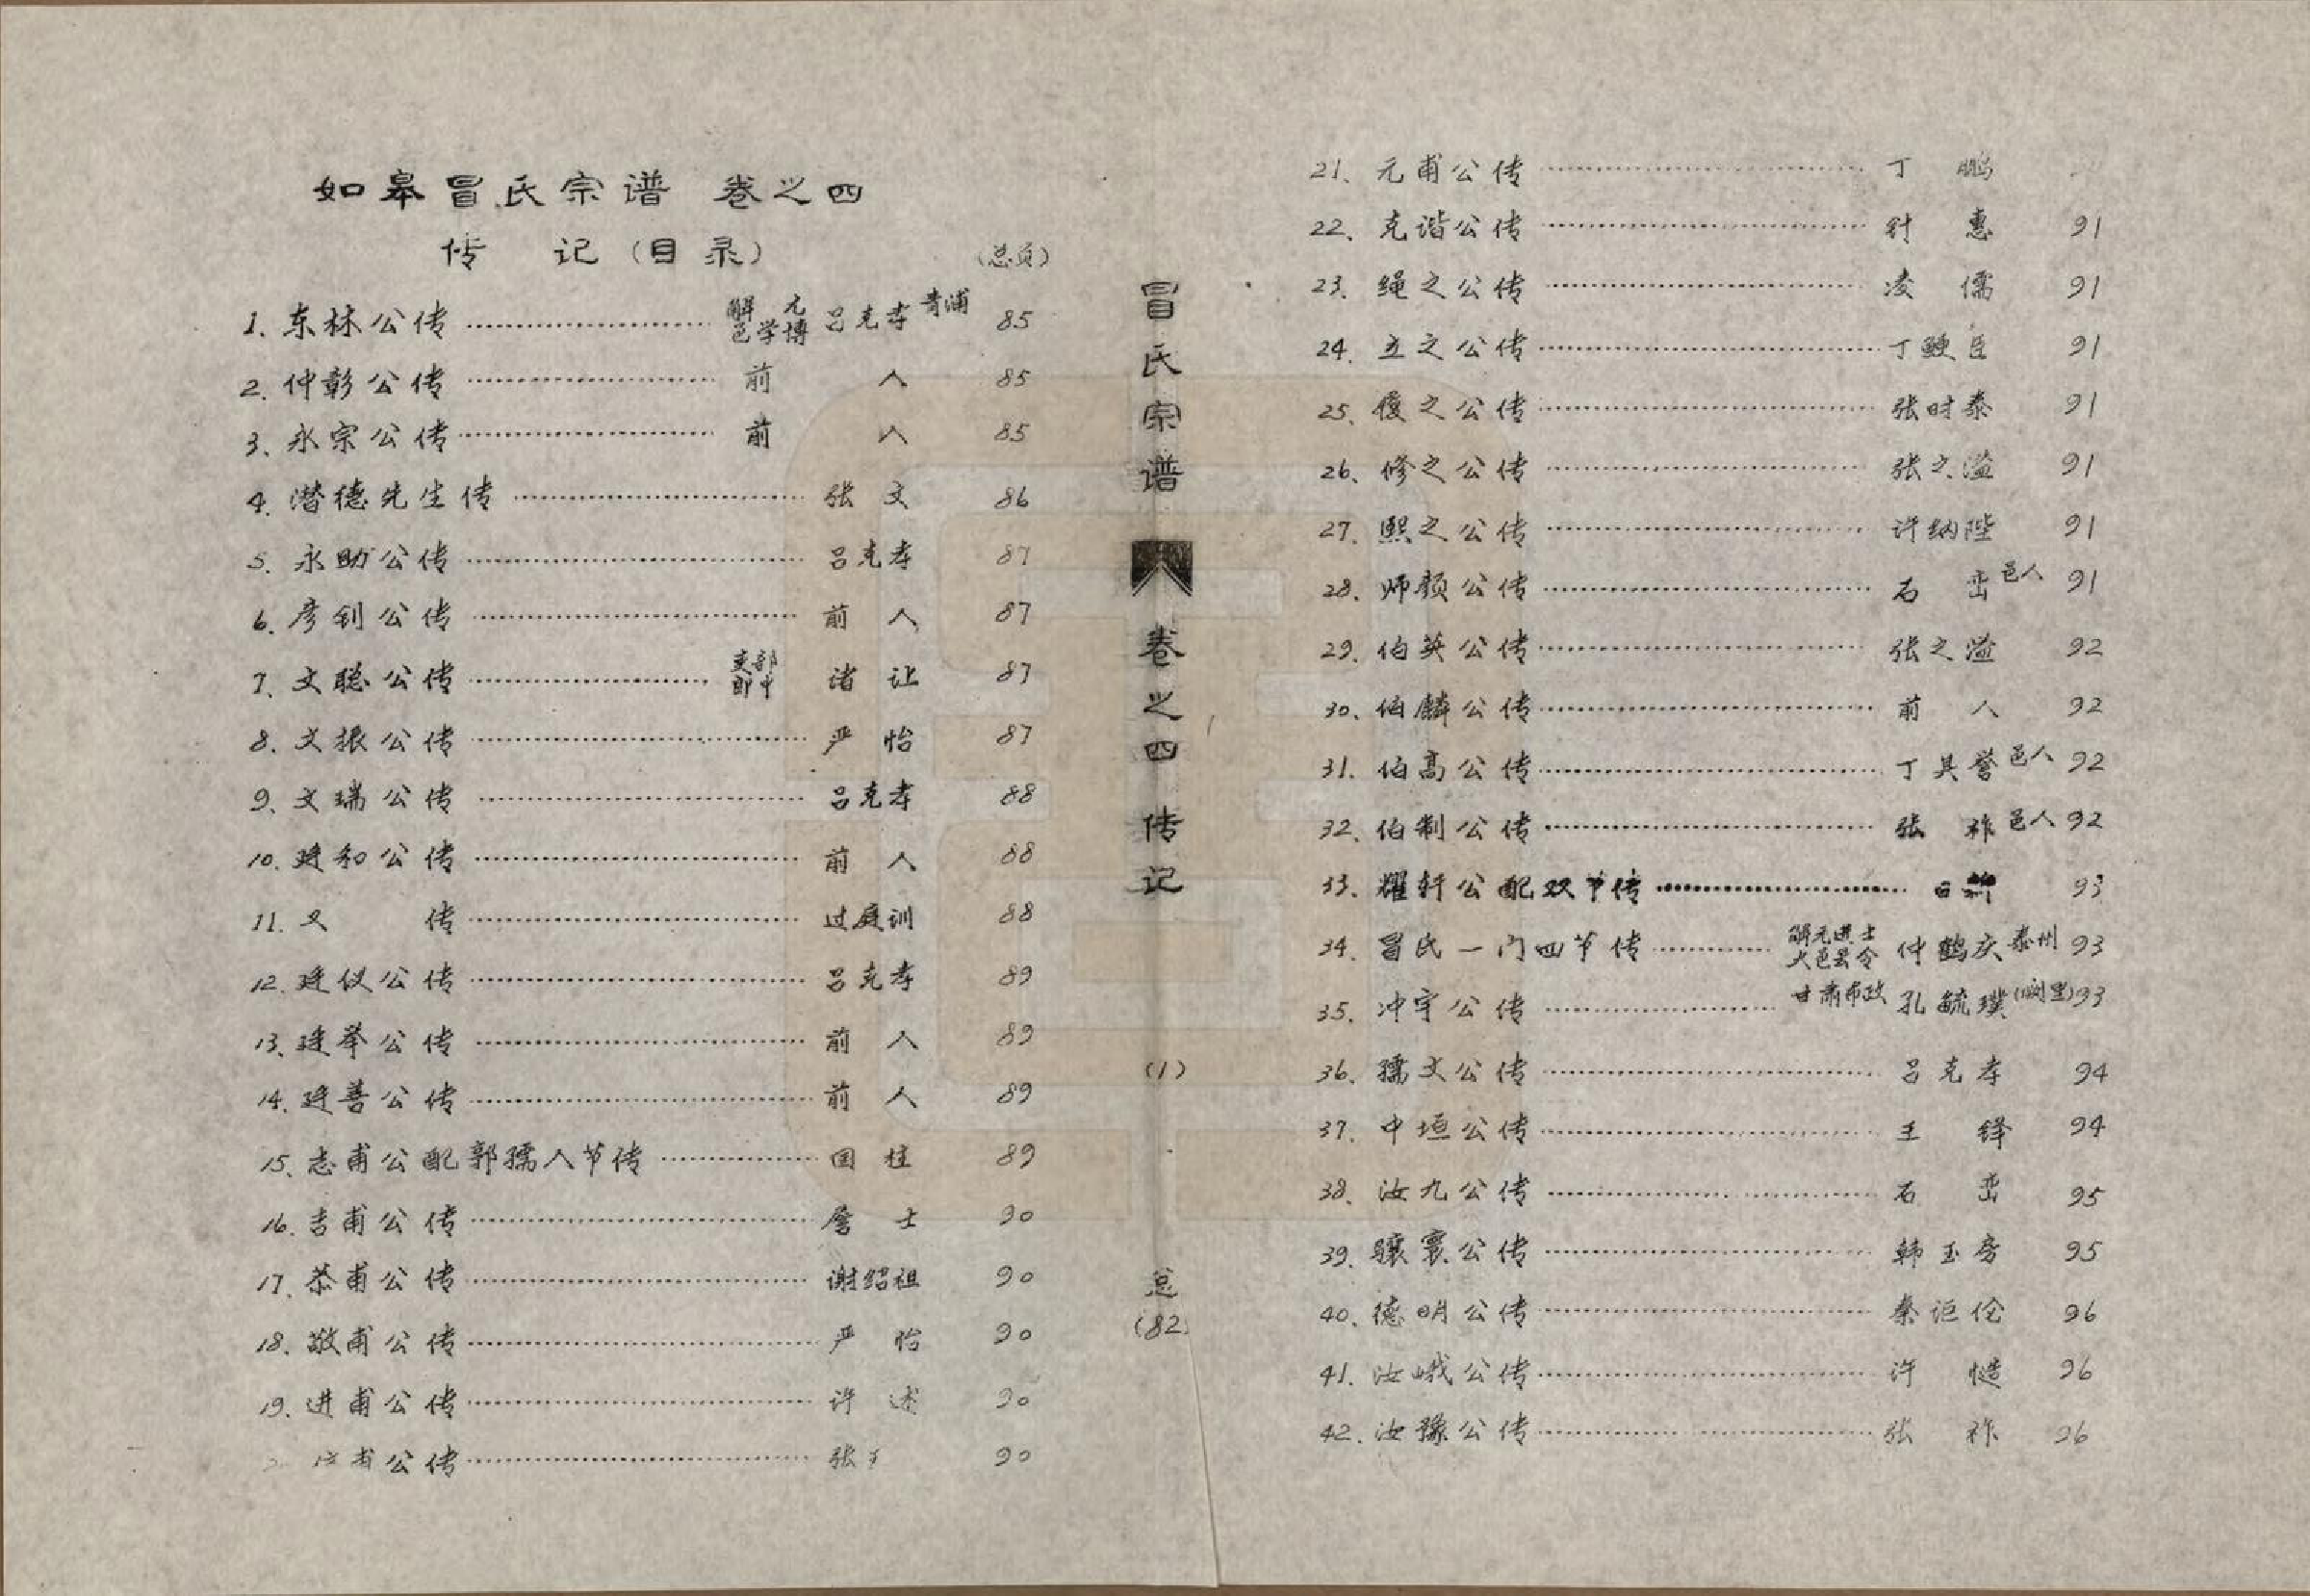 如皋冒氏宗谱 卷之四
传 记（目录）
（总页）
1. 东林公传 解元 邑学博 吕克孝 青浦 85
2. 仲彰公传 前人 85
3. 永宗公传 前人 85
4. 潜德先生传 张文 86
5. 永助公传 吕克孝 87
6. 彦钊公传 前人 87
7. 文聪公传 吏部郎中 诸让 87
8. 文振公传 严怡 87
9. 文瑞公传 吕克孝 88
10. 廷和公传 前人 88
11. 又 传 过庭训 88
12. 廷仪公传 吕克孝 89
13. 廷举公传 前人 89
14. 廷善公传 前人 89
15. 志甫公配郭孺人节传 国柱 89
16. 吉甫公传 詹士 90
17. 恭甫公传 谢绍祖 90
18. 敬甫公传 严怡 90
19. 进甫公传 许述 90
甫公传 张 90
冒氏宗谱 卷之四 传记 (1) 总 (82)
21. 元甫公传 丁鹏
22. 克谐公传 针惠 91
23. 绳之公传 凌儒 91
24. 立之公传 丁鲠臣 91
25. 优之公传 张时泰 91
26. 修之公传 张之溢 91
27. 熙之公传 许纳陛 91
28. 师颜公传 石峦 邑人 91
29. 伯英公传 张之溢 92
30. 伯麟公传 前人 92
31. 伯高公传 丁其誉 邑人 92
32. 伯制公传 张祚 邑人 92
33. 耀轩公配双节传 日新 93
34. 冒氏一门四节传 解元进士 大邑县令 仲鹤庆 泰州 93
35. 冲宇公传 甘肃布政 孔毓璞 (阙里) 93
36. 孺文公传 吕克孝 94
37. 中垣公传 王铎 94
38. 汝九公传 石峦 95
39. 骧寰公传 韩玉房 95
40. 德明公传 秦讵伦 96
41. 汝峨公传 许慥 96
42. 汝豫公传 张祚 96